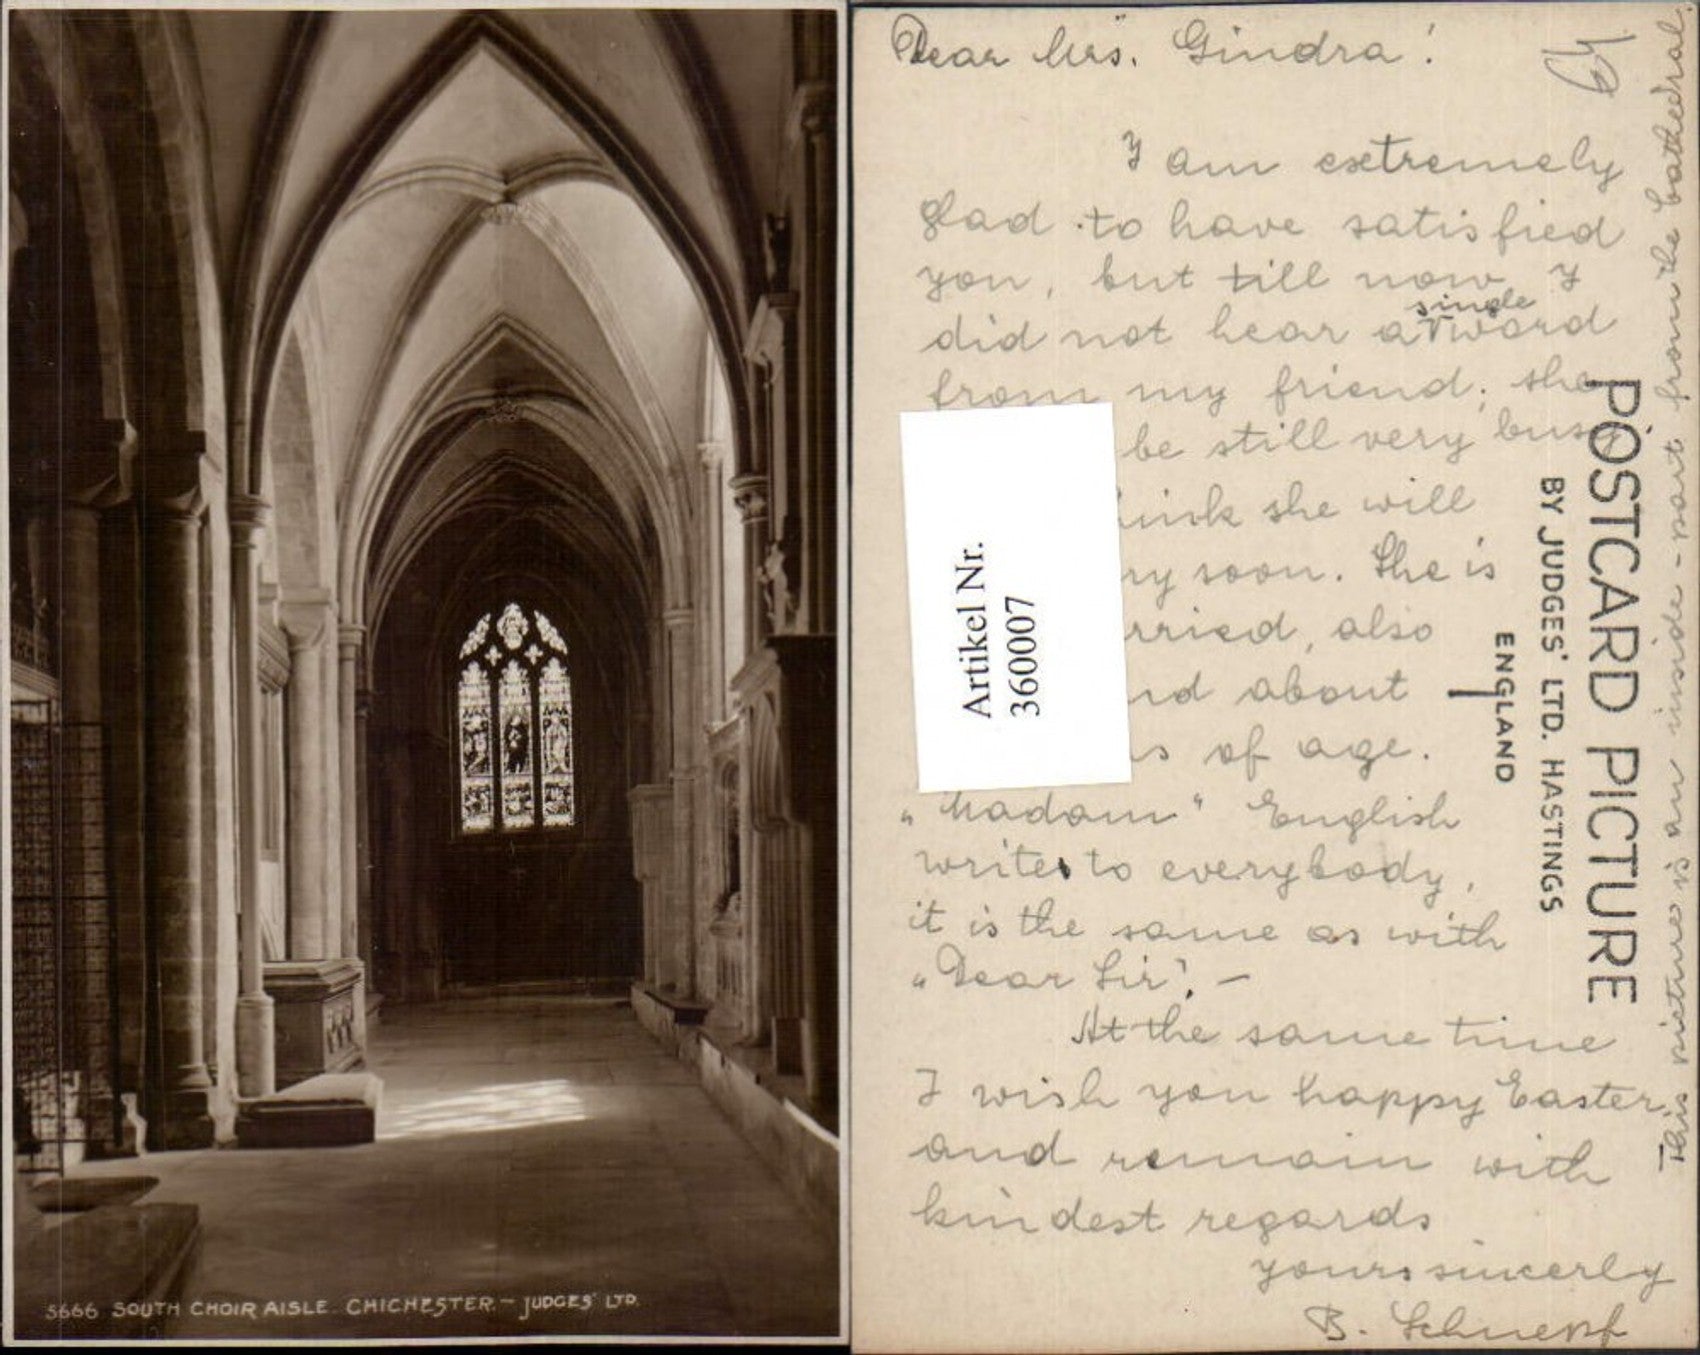 5666 SOUTH CHOIR AISLE CHICHESTER. – JUDGES' LTD.
Dear Mrs. Gindra!
I am extremely
glad to have satisfied
you, but till now I
did not hear a single word
from my friend; she
be still very busy
she will
soon. She is
also
about
of age.
„Madam" English
writes to everybody,
it is the same as with
„Dear Sir". –
At the same time
I wish you happy Easter
and remain with
kindest regards
yours sincerly
B. Schnepf
This picture is an inside-part from the cathedral.
POSTCARD PICTURE
BY JUDGES' LTD. HASTINGS
ENGLAND
Artikel Nr.
360007